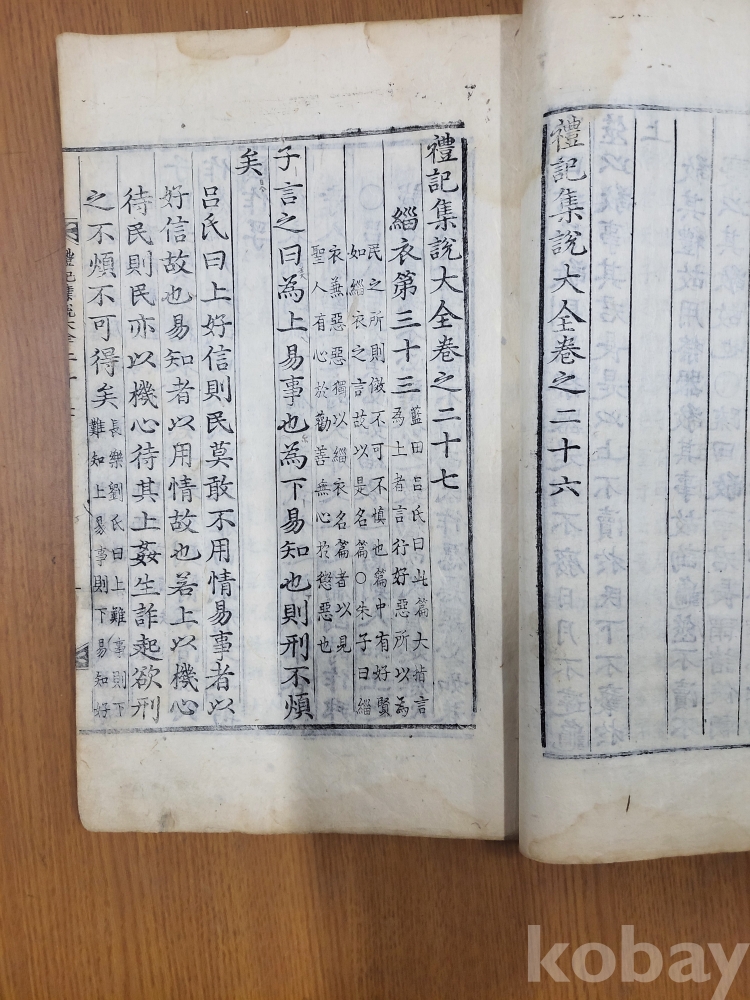 禮記集說大全卷之二十六
禮記集說大全卷之二十七
緇衣第三十三
藍田呂氏曰此篇大㫖言
爲上者言行好惡所以爲
民之所則傚不可不慎也篇中有好賢
如緇衣之言故以是名篇○朱子曰緇
衣兼惡惡獨以緇衣名篇者以見
聖人有心於勸善無心於懲惡也
子言之曰為上易事也為下易知也則刑不煩
矣
呂氏曰上好信則民莫敢不用情易事者以
好信故也易知者以用情故也若上以機心
待民則民亦以機心待其上姦生詐起欲刑
之不煩不可得矣
長樂劉氏曰上難事則下
難知上易事則下易知好
禮記集說大全二十七
kobay